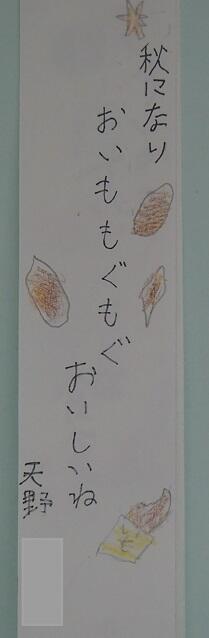 秋になり
おいももぐもぐ
おいしいね
天野